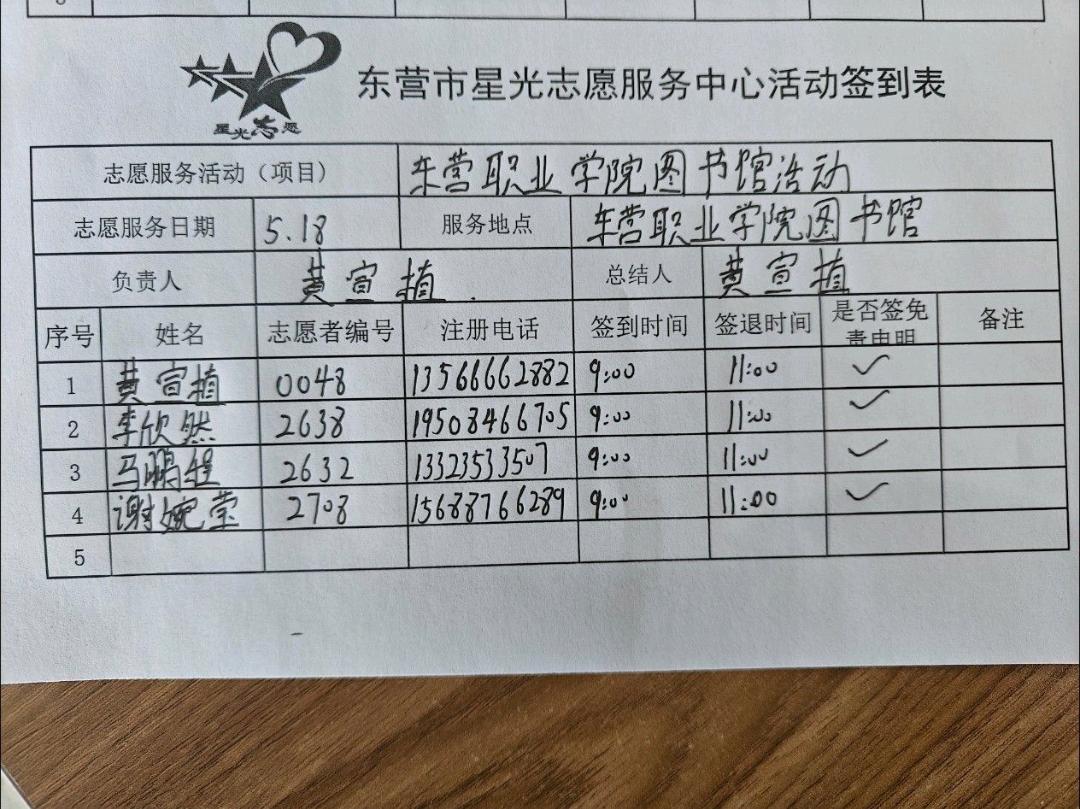 星光志愿
东营市星光志愿服务中心活动签到表
志愿服务活动（项目） 东营职业学院图书馆活动
志愿服务日期 5.18 服务地点 东营职业学院图书馆
负责人 黄宣植 总结人 黄宣植
序号 姓名 志愿者编号 注册电话 签到时间 签退时间 是否签免责申明 备注
1 黄宣植 0048 13566662882 9:00 11:00 ✓
2 李欣然 2638 19508466705 9:00 11:00 ✓
3 马鹏程 2632 13323533507 9:00 11:00 ✓
4 谢婉莹 2708 15688766289 9:00 11:00 ✓
5